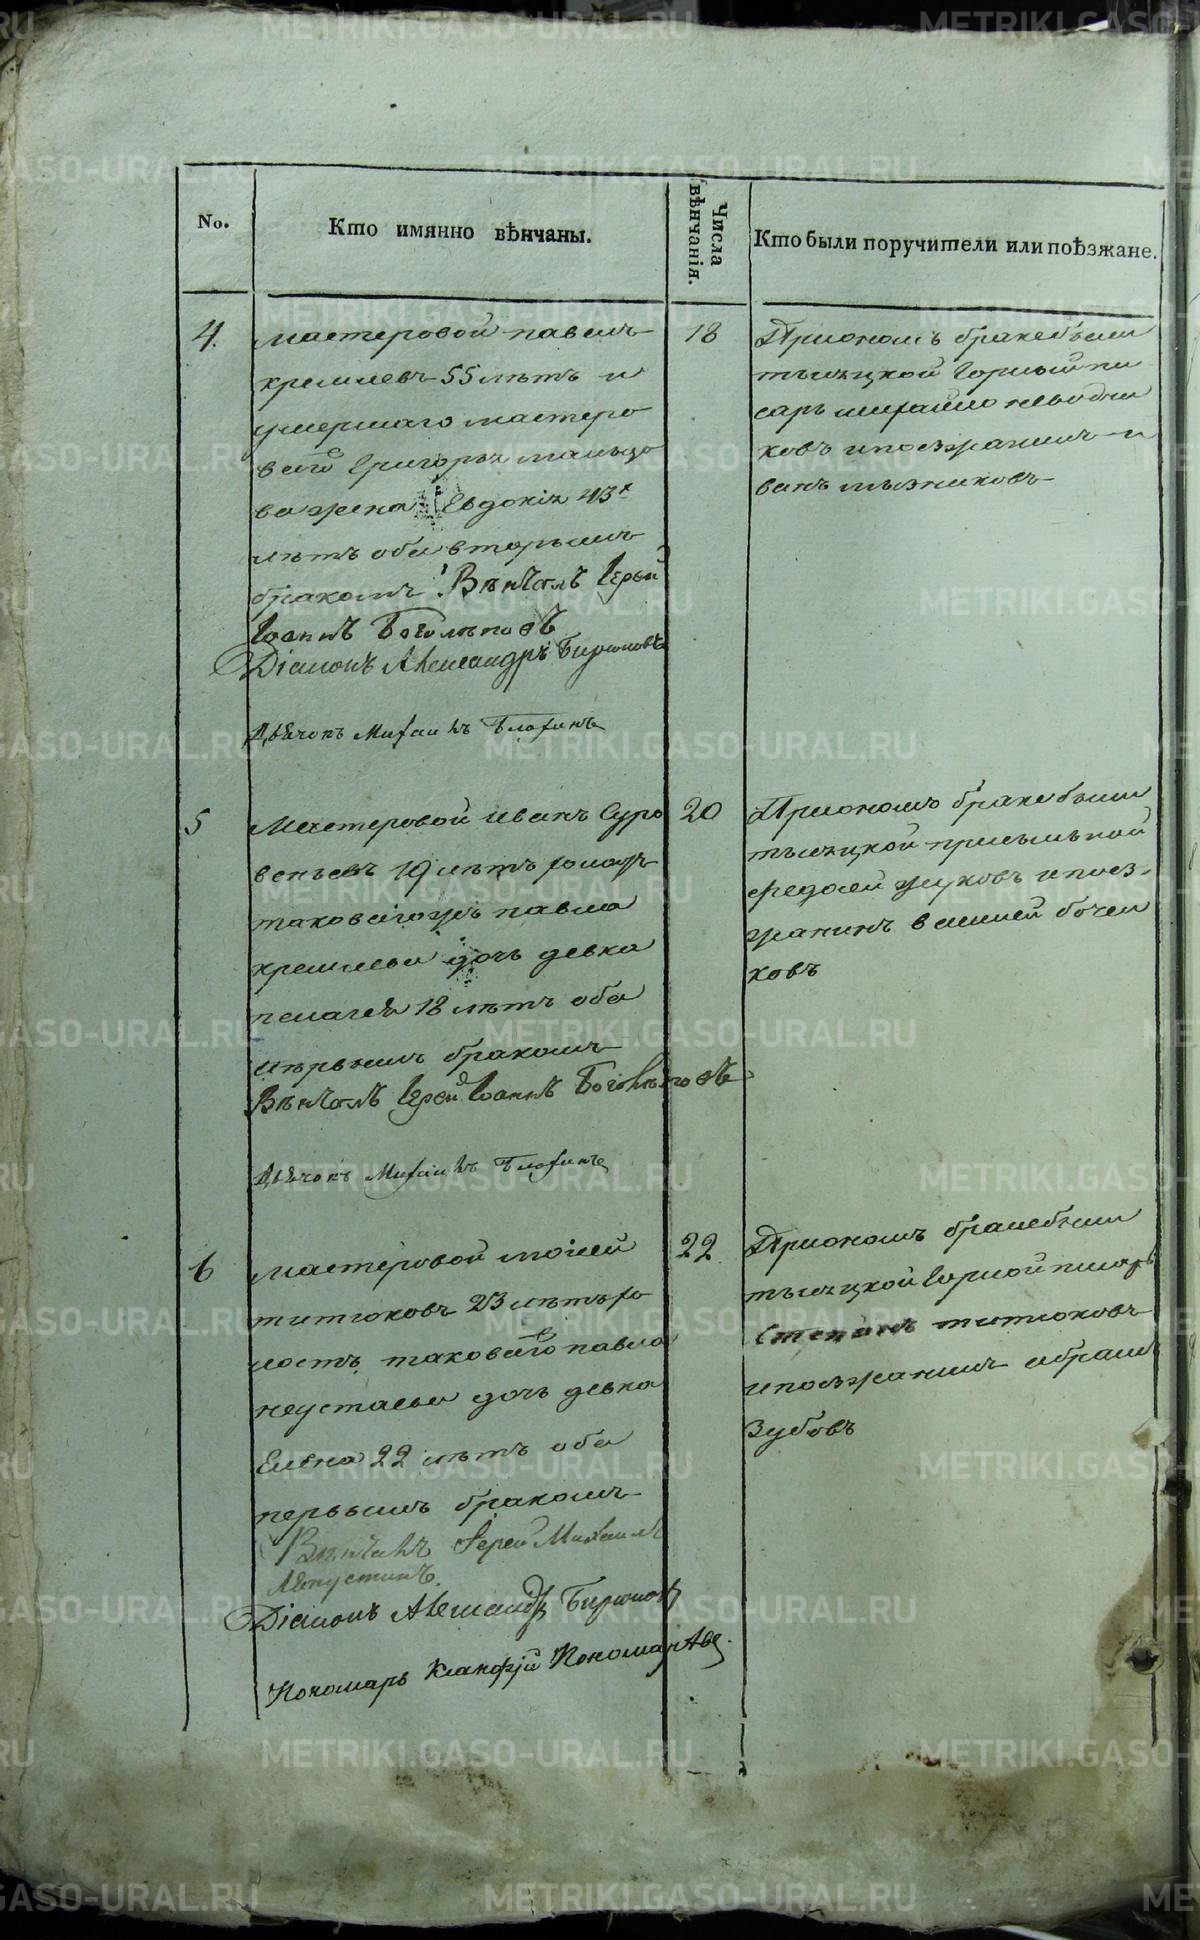 No.
Кто имянно вѣнчаны.
Числа вѣнчанія.
Кто были поручители или поѣзжане.
4.
мастеровой павелъ
кремлевъ 55 лѣтъ и
умершаго мастеро
ваго Григорья мальцо
ва жена Евдокія 43х
лѣтъ оба вторымъ
бракомъ Вѣнчалъ Іерей
Іоаннъ Боголѣповъ
Діаконъ Александръ Бирюковъ
Дьячокъ Михаилъ
18
Приономъ браке были
тысяцкой Горный пи
сарь михайло неводчи
ковъ ипоезжанинъ и
ванъ мызниковъ
5
Мастеровой иванъ Суро
венъевъ 19 лѣтъ холостъ
таковагожъ павла
кремлева дочь девка
пелагея 18 лѣтъ оба
первымъ бракомъ
Вѣнчалъ Іерей Іоаннъ Боголѣповъ
Дьячокъ Михаилъ
20
Приономъ браке были
тысяцкой присыльной
федосей жуковъ ипоез-
жанинъ василей бочен
ковъ
6
мастеровой мосей
титюковъ 23 лѣтъ хо
лостъ таковаго павла
неустаева дочь девка
Елена 22 лѣтъ оба
первымъ бракомъ
Вѣнчалъ Іерей Михаилъ
Августинъ
Діаконъ Александр Бирюковъ
Пономарь Пономарѣв
22
Приономъ браке были
тысяцкой Горной писарь
Степанъ титюковъ
ипоезжанинъ абрамъ
Зубовъ
METRIKI.GASO-URAL.RU